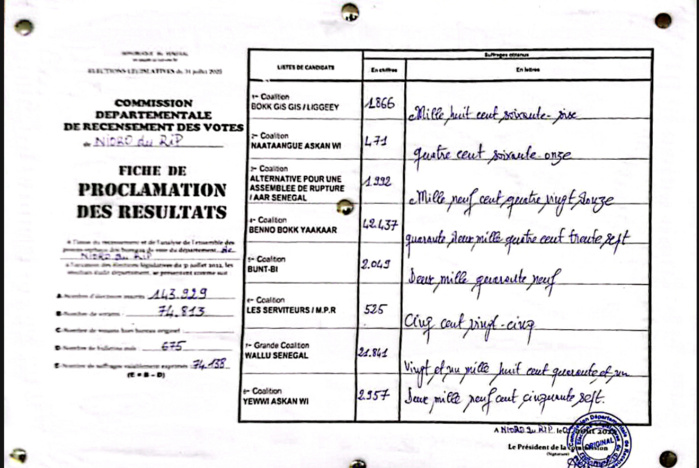 REPUBLIQUE DU SENEGAL
ELECTIONS LEGISLATIVES du 31 juillet 2022
COMMISSION
DEPARTEMENTALE
DE RECENSEMENT DES VOTES
de NIORO du RIP
FICHE DE
PROCLAMATION
DES RESULTATS
A l'issue du recensement et de l'analyse de l'ensemble des
procès-verbaux des bureaux de vote du département de
NIORO du RIP
résultats dudit département, se présentent comme suit
A-Nombre d'électeurs inscrits 143.929
B-Nombre de votants 74.813
C-Nombre de votants hors bureau originel
D-Nombre de bulletins nuls 675
E-Nombre de suffrages valablement exprimés 74.138
(E = B - D)
Suffrages obtenus
LISTES DE CANDIDATS En chiffres En lettres
Coalition
BOKK GIS GIS / LIGGEEY 1.866 Mille huit cent soixante-sixe
Coalition
NAATAANGUE ASKAN WI 471 quatre cent soixante-onze
Coalition
ALTERNATIVE POUR UNE
ASSEMBLEE DE RUPTURE
/ AAR SENEGAL 1.992 Mille neuf cent quatre vingt douze
Coalition
BENNO BOKK YAAKAAR 42.437 quarante deux mille quatre cent trente sept
Coalition
BUNT-BI 2.049 Deux mille quarante neuf
Coalition
LES SERVITEURS / M.P.R 525 Cinq cent vingt-cinq
Grande Coalition
WALLU SENEGAL 21.841 Vingt et un mille huit cent quarante et un
Coalition
YEWWI ASKAN WI 2.957 Deux mille neuf cent cinquante sept.
A NIORO du RIP, le
Le Président de la Commission
ORIGINAL